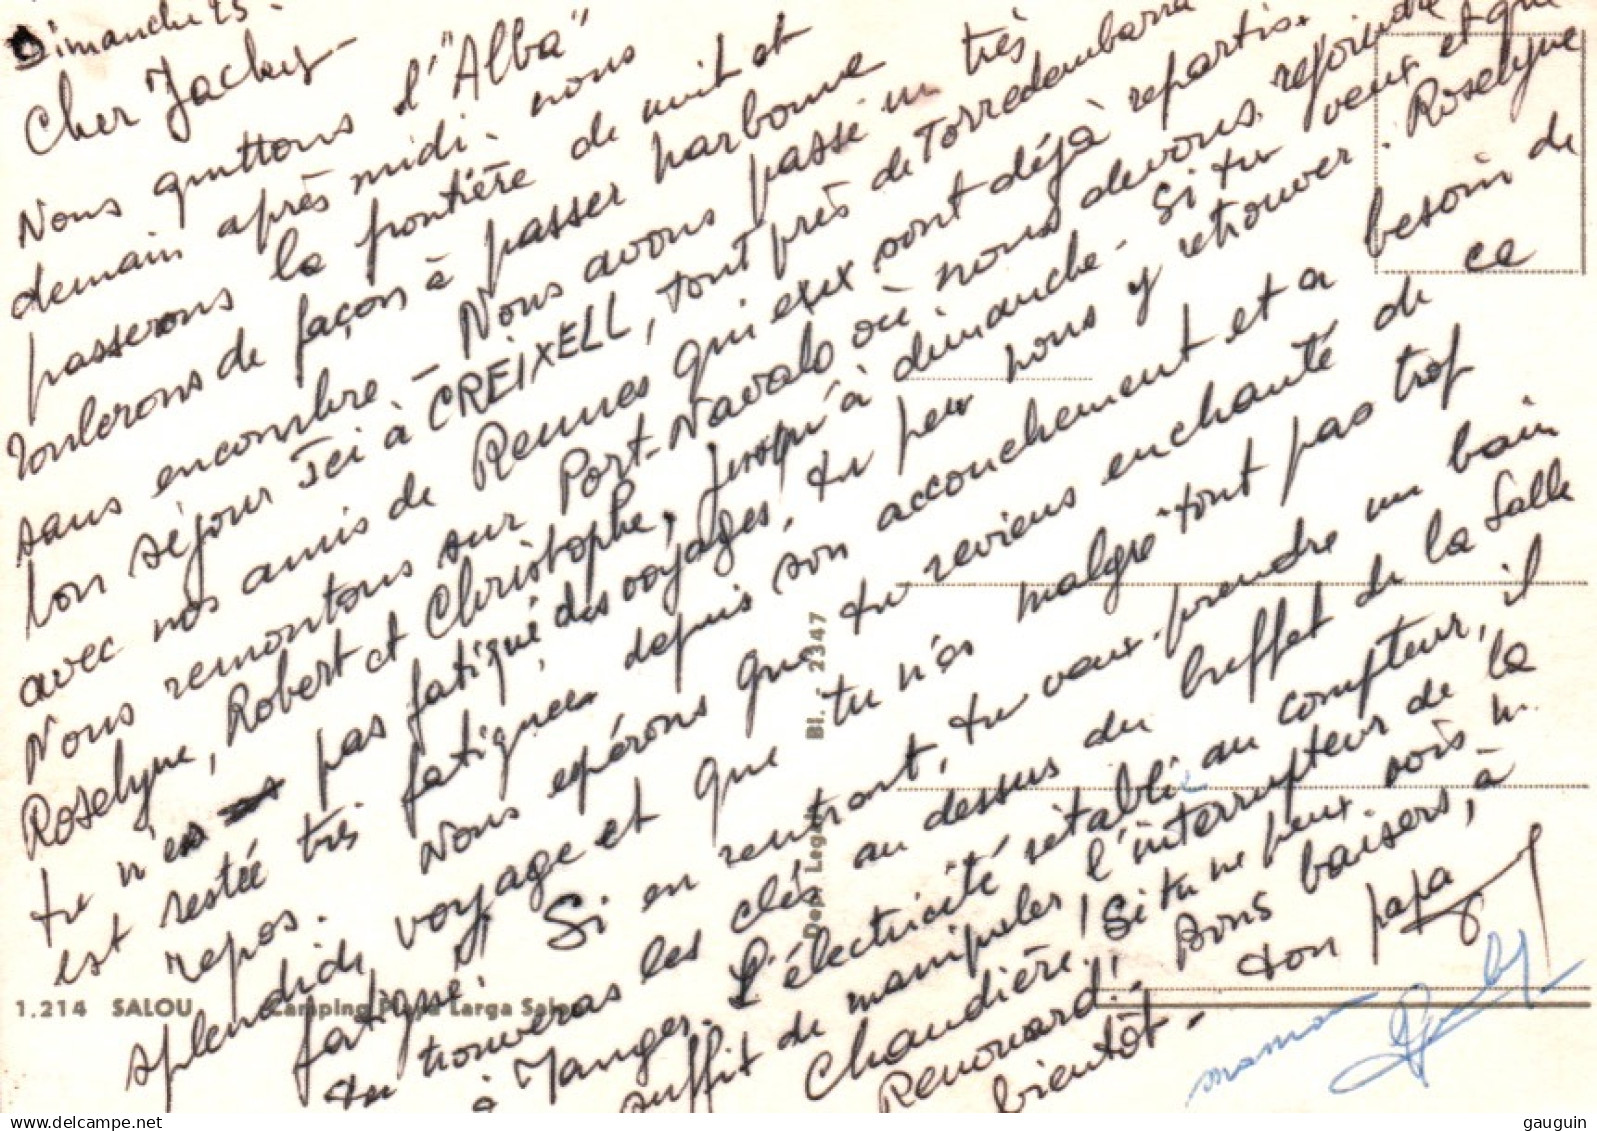 Dimanche 25.
Cher Jacky -
Nous quittons l'"Alba"
demain après midi. nous
passerons la frontière de nuit et
roulerons de façon à passer narbonne
sans encombre. - Nous avons passé un très
bon séjour ici à CREIXELL, tout près de Torredembarra
avec nos amis de Rennes qui eux sont déjà repartis.
Nous remontons sur Port-Navalo où nous devons rejoindre
Roselyne, Robert et Christophe, jusqu'à dimanche - Si tu veux et que
tu n'es pas fatigué des voyages, tu peux nous y retrouver. Roselyne
est restée très fatiguée depuis son accouchement et a besoin de
repos. Nous espérons que tu reviens enchanté de ce
splendide voyage et que tu n'es malgré tout pas trop
fatigué. Si en rentrant, tu veux prendre un bain
tu trouveras les clés au dessus du buffet de la salle
à manger. L'électricité rétablie au compteur, il
suffit de manipuler l'interrupteur de la
Chaudière. Si tu ne peux. vois-m.
Renouard! Bons baisers, à
bientôt - ton papa
maman
1.214 SALOU Camping Playa Larga Salou
Dep. Legal Bl. 2347
gauguin